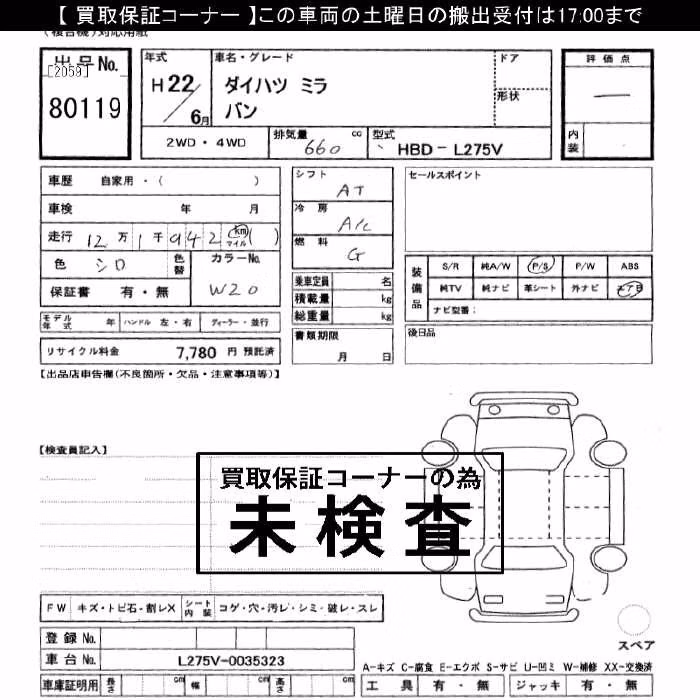 【 買取保証コーナー 】この車両の土曜日の搬出受付は17:00まで
(複合機)対応用紙
出品No.
[2059]
80119
年式
H22/6月
車名・グレード
ダイハツ ミラ
バン
ドア
形状
評価点
—
内装
2WD・4WD
排気量 660 cc
型式 HBD-L275V
車歴 自家用・( )
車検 年 月
走行 12万1千942 km マイル ( )
色 シロ 色替
カラーNo. W20
保証書 有・無
シフト AT
冷房 A/C
燃料 G
セールスポイント
装備品
S/R 純A/W P/S P/W ABS
純TV 純ナビ 革シート 外ナビ エアB
ナビ型番:
乗車定員 名
積載量 kg
総重量 kg
モデル年式 年 ハンドル 左・右 ディーラー・並行
リサイクル料金 7,780 円 預託済
書類期限
月 日
後日品
【出品店申告欄(不良箇所・欠品・注意事項等)】
【検査員記入】
買取保証コーナーの為
未検査
FW キズ・トビ石・割レX シート内装 コゲ・穴・汚レ・シミ・破レ・スレ
登録No.
車台No. L275V-0035323
車庫証明用 長さ cm 幅 cm 高さ cm
スペア
A-キズ C-腐食 E-エクボ S-サビ U-凹ミ W-補修 XX-交換済
工具 有・無 ジャッキ 有・無